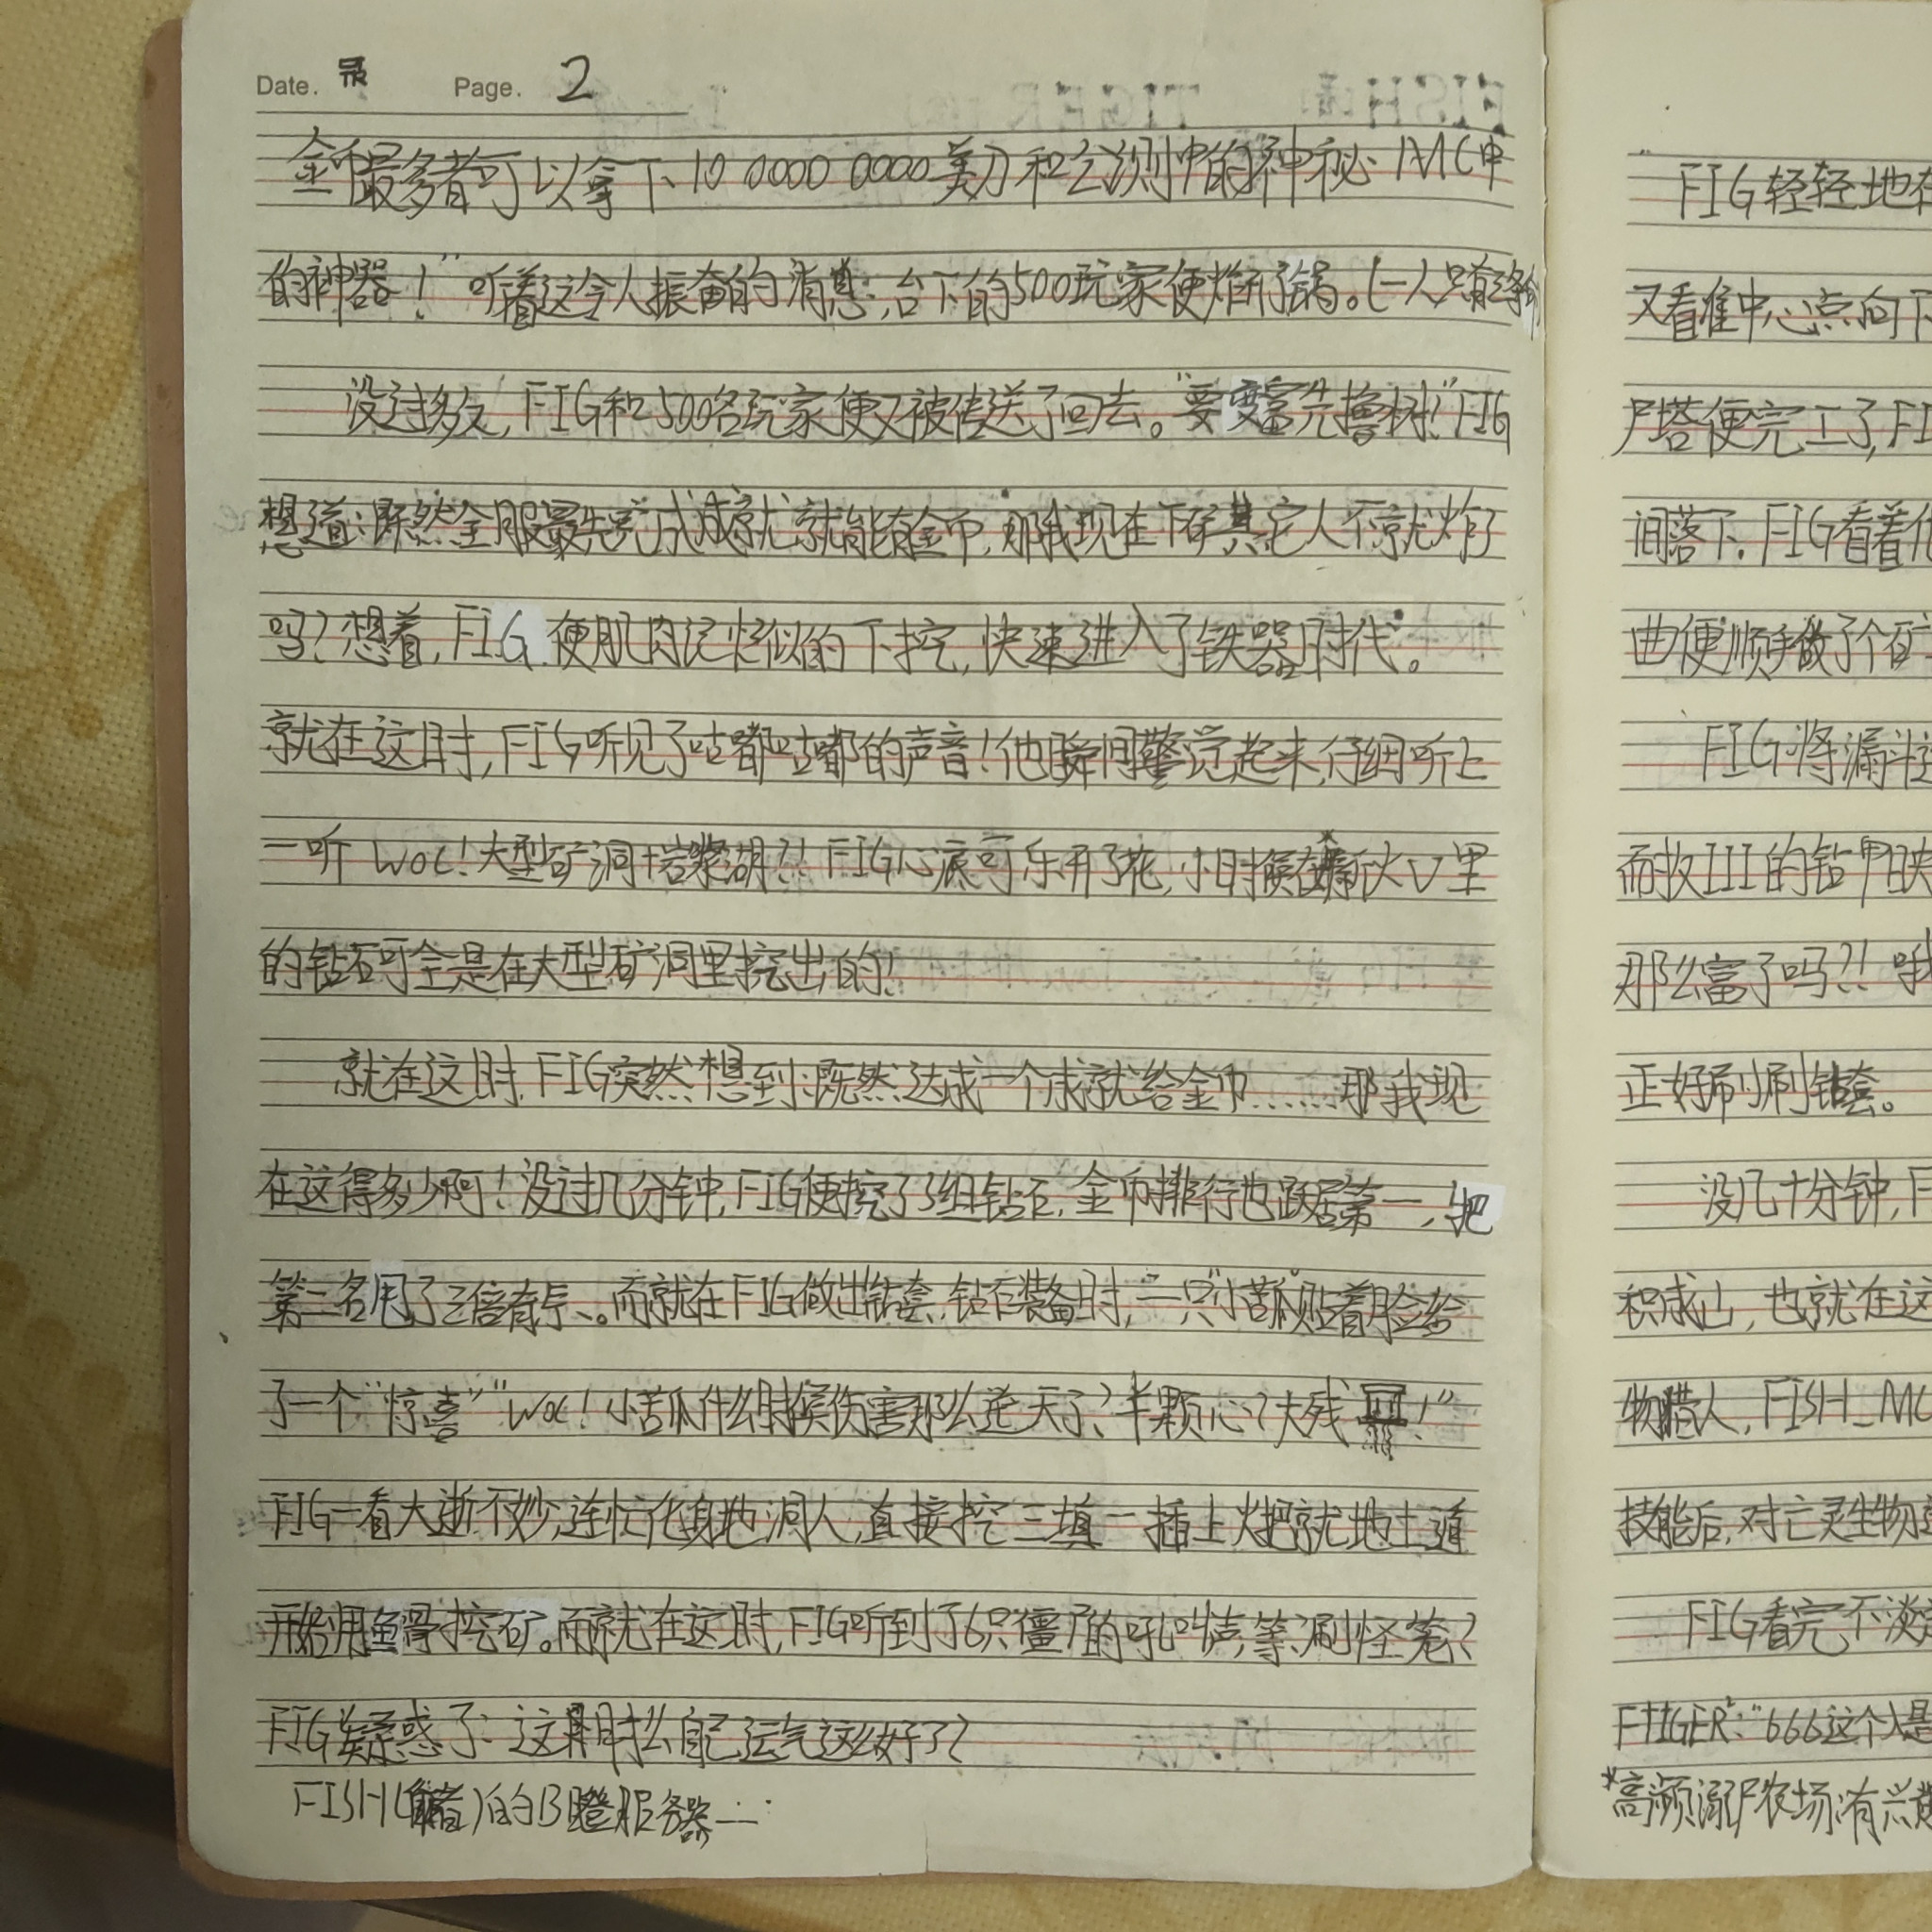 Date. Page. 2
金币最多者可以拿下10 0000 0000美刀和公测中的神秘MC中
的神器！”听着这令人振奋的消息，台下的500玩家便炸开了锅。(一人只有
没过多久，FIG和500名玩家便又被传送了回去。“要变富先撸树！”FIG
想道：既然全服最先完成成就就能有金币，那我现在下矿其它人不就炸了
吗？想着，FIG便肌肉记忆似的下挖，快速进入了铁器时代。
就在这时，FIG听见了咕嘟咕嘟的声音！他瞬间警觉起来，仔细听上
一听 WOC！大型矿洞+岩浆湖？！FIG心底可乐开了花，小时候在薪火V里
的钻石可全是在大型矿洞里挖出的！
就在这时，FIG突然想到：既然达成一个成就给金币……那我现
在这得多少啊！没过几分钟，FIG便挖了3组钻石，金币排行也跃居第一，把
第二名甩了三倍有余。而就在FIG做出钻套，钻石装备时，一只“小苦瓜”贴着脸给
了一个“惊喜”“WOC！小苦瓜什么时候伤害那么逆天了？半颗心？大残！”
FIG一看大逝不妙，连忙化身地洞人，直接挖三填一插上火把就地土遁
开始用鱼骨挖矿。而就在这时，FIG听到了6只僵尸的吼叫声，等等，刷怪笼？
FIG疑惑了：这 自己运气这么好了？
FISH(作者)的B 服务器……
FIG轻轻地在
又看准中心点向下
尸塔便完工了，FI
间落下。FIG看着
曲便顺手做了个矿
FIG将漏斗
而抢III的钻
那么富了吗？！哦
正好刷刷钻套。
没几十分钟，F
积成山，也就在这
物猎人，FISH_MC
技能后，对亡灵生物
FIG看完不淡
FTIGER：“666这个人是
*高频溺尸农场：有兴趣